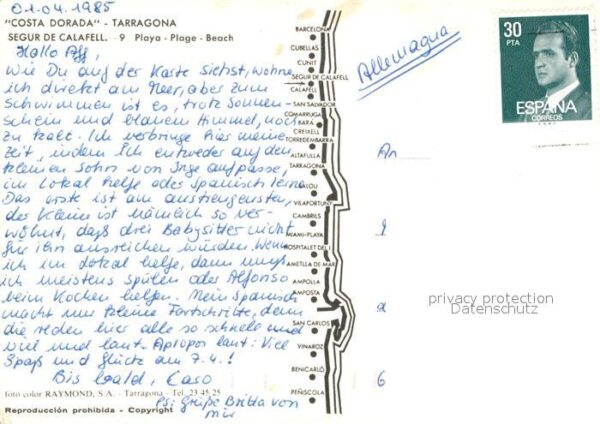 01.04.1985
"COSTA DORADA" - TARRAGONA
SEGUR DE CALAFELL. - 9 Playa - Plage - Beach
Hallo
Wie Du auf der Karte siehst, wohne
ich direkt am Meer, aber zum
Schwimmen ist es, trotz Sonnen-
schein und blauem Himmel, noch
zu kalt. Ich verbringe hier meine
Zeit, indem Ich entweder auf den
kleinen Sohn von Inge aufpasse,
im Lokal helfe oder Spanisch lerne.
Das erste ist am anstrengensten,
der Kleine ist nämlich so ver-
wöhnt, daß drei Babysitter nicht
für ihn ausreichen würden. Wenn
ich im Lokal helfe, dann muß
ich meistens spülen oder Alfonso
beim Kochen helfen. Mein Spanisch
macht nur kleine Fortschritte, denn
die reden hier alle so schnelle und
viel und laut. Apropos laut: Viel
Spaß und Glück am 7.4.!
Bis bald, Caro
PS: Grüße Britta von
mir
foto color RAYMOND, S.A. - Tarragona - Tel. 23 45 25
Reproducción prohibida - Copyright
BARCELONA
CUBELLAS
CUNIT
SEGUR DE CALAFELL
CALAFELL
SAN SALVADOR
COMARRUGA
BARÁ
CREIXELL
TORREDEMBARRA
ALTAFULLA
TARRAGONA
SALOU
VILAFORTUNY
CAMBRILS
MIAMI-PLAYA
HOSPITALET DEL I.
AMETLLA DE MAR
AMPOLLA
AMPOSTA
SAN CARLOS
VINAROZ
BENICARLÓ
PEÑISCOLA
Allemagna
30
PTA
ESPAÑA
CORREOS
An
privacy protection
Datenschutz
6